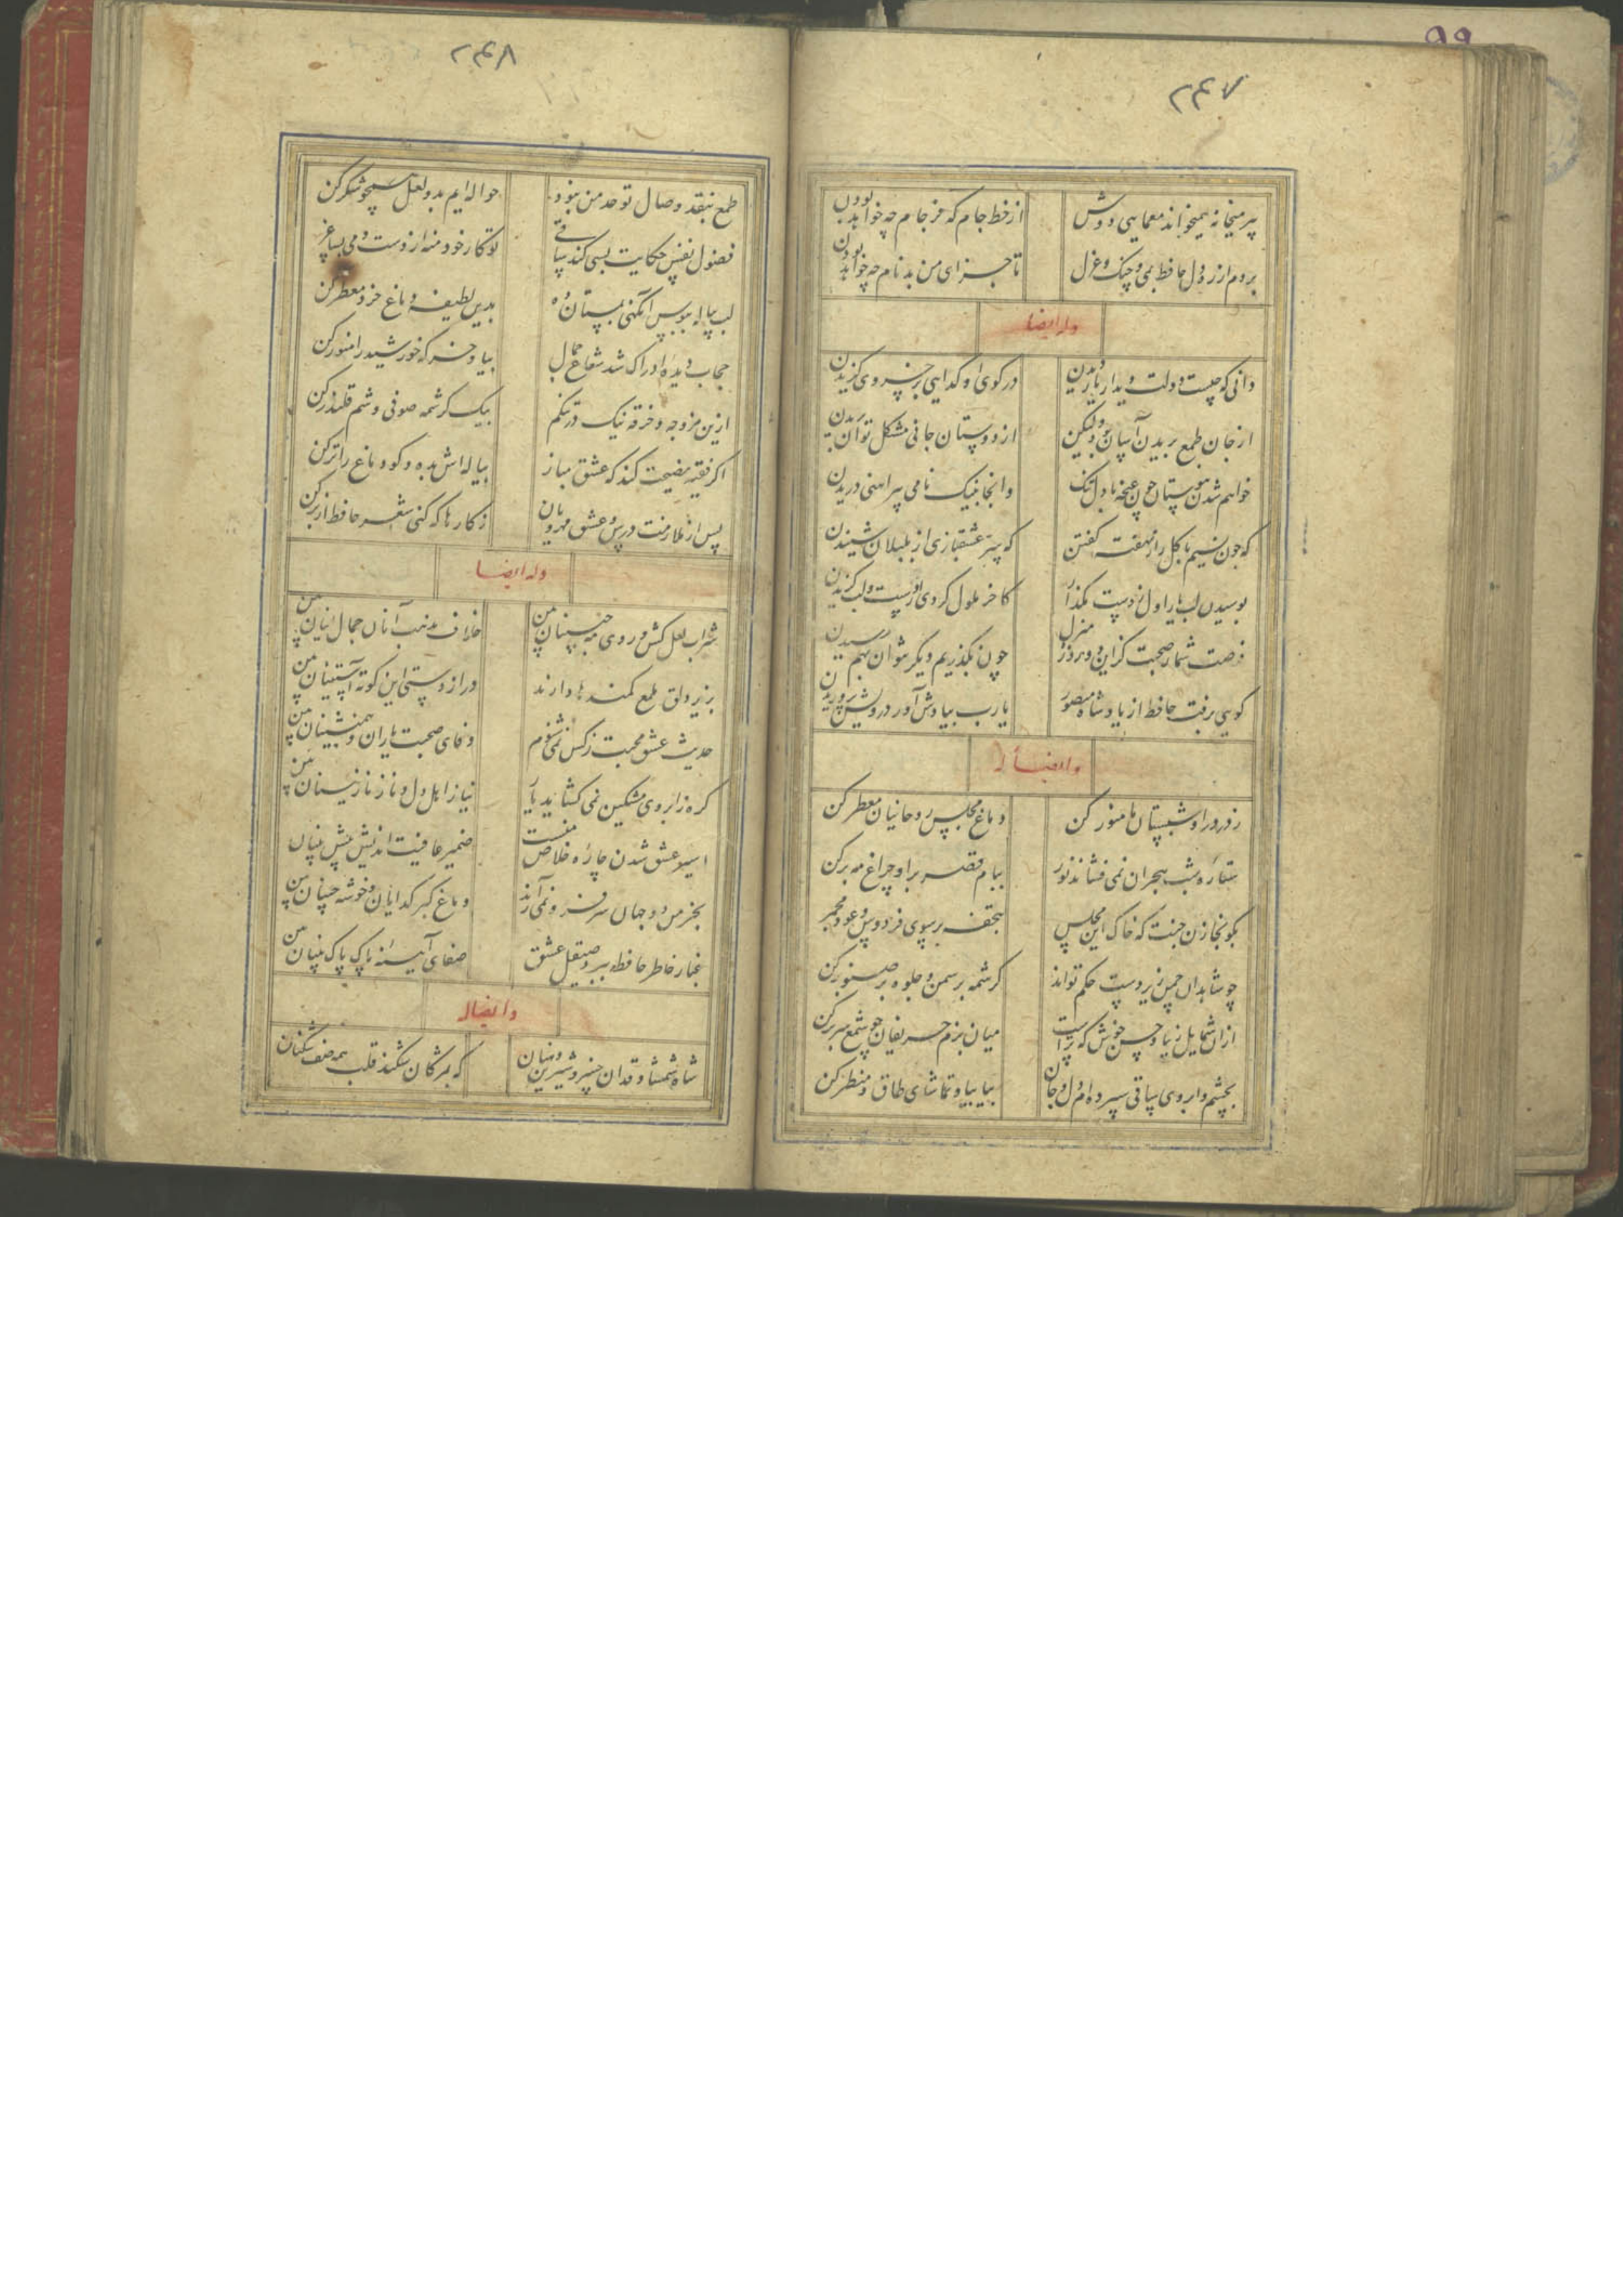 ۹۹
۲۴۷
پیر میخانه همیخواند معمایی دوش از خط جام که فرجام چه خواهد بودن
بردم از ره دل حافظ بمی و چنک و غزل تا جزای من بدنام چه خواهد بودن
وله ایضا
دانی که چیست دولت دیدار یار دیدن در کوی او کدایی بر خسروی کزیدن
از جان طمع بریدن آسان بود ولیکن از دوستان جانی مشکل توان بریدن
خواهم شدن ببوستان چون غنچه با دل تنک وانجا بنیک نامی پیراهنی دریدن
که چون نسیم با کل راز نهفته کفتن که سر عشقبازی از بلبلان شنیدن
بوسیدن لب یار اول ز دست مکذار کاخر ملول کردی از دست و لب کزیدن
فرصت شمار صحبت کز این دوروزه منزل چون بکذریم دیکر نتوان بهم رسیدن
کویی برفت حافظ از یاد شاه منصور یارب بیادش آور درویش پروریدن
وایضا له
ز در درا و شبستان ما منور کن دماغ مجلس روحانیان معطر کن
ستاره شب هجران نمی فشاند نور ببام قصر برا و چراغ مه برکن
بکو بخازن جنت که خاک این مجلس بتحفه بر سوی فردوس و عود مجمر
چو شاهدان چمن زیردست حکم تواند کرشمه بر سمن و جلوه بر صنوبر کن
ازان شمایل زیبا و حسن خوش که تراست میان بزم حریفان چو شمع سر برکن
بچشم و ابروی ساقی سپرده ام دل و جان بیا بیا و تماشای طاق و منظر کن
۲۴۸
طمع بنقد وصال تو حد من نبود حواله ایم بدو لعل همچو شکر کن
فضول نفس حکایت بسی کند ساقی تو کار خود منه از دست و می بساغر
لب پیاله ببوس آنکهی بمستان ده بدین لطیفه دماغ خرد معطر کن
حجاب دیده ادراک شد شعاع جمال بیا و خرکه خورشید را منور کن
ازین مزوجه و خرقه نیک در تنکم بیک کرشمه صوفی وشم قلندر کن
اکر فقیه نصیحت کند که عشق مباز پیاله اش بده و کو دماغ را تر کن
پس از ملازمت درس و عشق مهرویان ز کارها که کنی شعر حافظ از بر کن
وله ایضا
شراب لعل کش و روی مه جبینان بین خلاف مذهب آنان جمال اینان بین
بزیر دلق ملمع کمندها دارند دراز دستی این کوته آستینان بین
حدیث عشق و محبت ز کس نمی شنوم وفای صحبت یاران و همنشینان بین
کره ز ابروی مشکین نمی کشاید یار نیاز اهل دل و ناز نازنینان بین
اسیر عشق شدن چاره خلاص منست ضمیر عاقبت اندیش پیش بینان
بخرمن دو جهان سر فرو نمی آرند دماغ کبر کدایان و خوشه چینان بین
غبار خاطر حافظ ببرد صیقل عشق صفای آیینه پاک پاک بینان بین
وایضا له
شاه شمشاد قدان خسرو شیرین دهنان که بمژکان شکند قلب همه صف شکنان